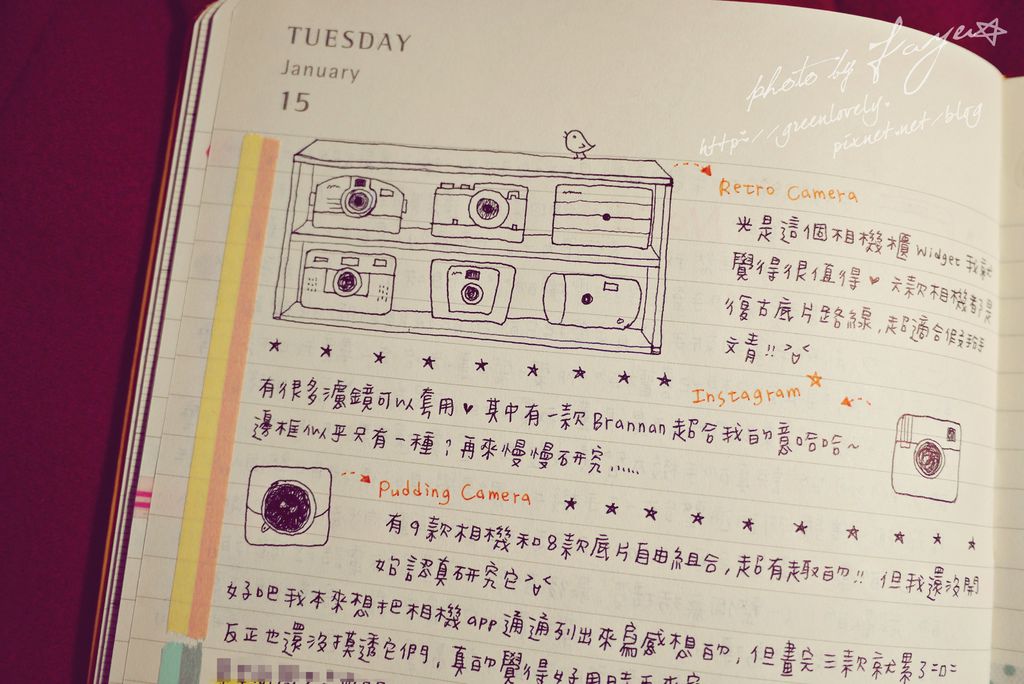 TUESDAY
January
15
photo by Faye
http://greenlovely.
pixnet.net/blog
Retro Camera
光是這個相機櫃 widget 我就
覺得很值得♥ 六款相機都是
復古底片路線,超適合假掰
文青!!
Instagram
有很多濾鏡可以套用♥ 其中有一款 Brannan 超合我的意哈哈~
邊框似乎只有一種?再來慢慢研究......
Pudding Camera
有9款相機和8款底片自由組合,超有趣的!! 但我還沒開
始認真研究它
好吧我本來想把相機app通通列出來寫感想的,但畫完三款就累了=口=
反正也還沒摸透它們,真的覺得好用時再來寫